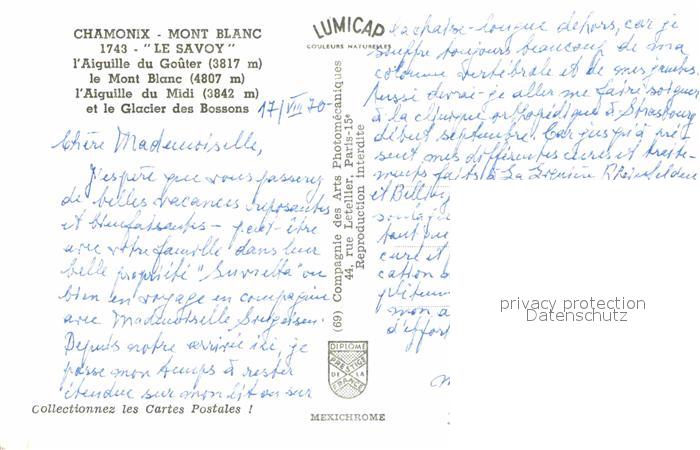 CHAMONIX - MONT BLANC
1743 - "LE SAVOY"
l'Aiguille du Goûter (3817 m)
le Mont Blanc (4807 m)
l'Aiguille du Midi (3842 m)
et le Glacier des Bossons
17/VIII 70-
Chère Mademoiselle,
J'espère que vous passerez
de belles vacances reposantes
et bienfaisantes - peut-être
avec votre famille dans leur
belle propriété "Surretta" ou
bien en voyage en compagnie
avec Mademoiselle
Depuis notre arrivée ici, je
passe mon temps à rester
étendue sur mon lit ou sur
Collectionnez les Cartes Postales !
LUMICAP
COULEURS NATURELLES
(69) Compagnie des Arts Photomécaniques
44, rue Letellier, Paris-15e
Reproduction Interdite
DIPLOME
PRESTIGE
DE LA
FRANCE
MEXICHROME
la chaise-longue dehors, car je
souffre toujours beaucoup de ma
colonne vertébrale et de mes jambes.
Aussi devrai-je aller me faire soigner
à la clinique orthopédique à Strasbourg
début septembre. Car jusqu'à pré-
sent mes différentes cures et traite-
ments faits à La Rheinfelden
et
tout
cure et
cation
mon a
d'effort
privacy protection
Datenschutz